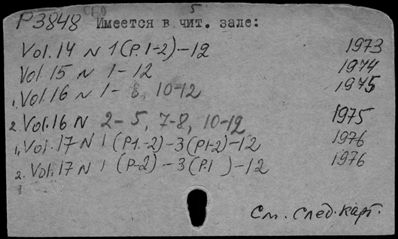 Р3848 Имеется в чит. зале: 5
Vol. 14 N 1 (P. 1-2) - 12 1973
Vol 15 N 1 - 12 1974
1. Vol. 16 N 1 - 8, 10-12 1975
2. Vol. 16 N 2-5, 7-8, 10-12 1975
1. Vol. 17 N 1 (P.1.-2) - 3 (P.1-2) - 12 1976
2. Vol. 17 N 1 (P-2) - 3 (P.1 ) - 12 1976
См. след. карт.